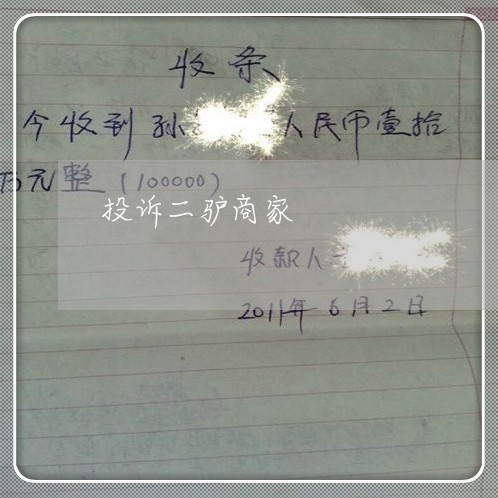 收条
今收到 孙 人民币壹拾
万元整（100000）
投诉二驴商家
收款人
2011年6月2日